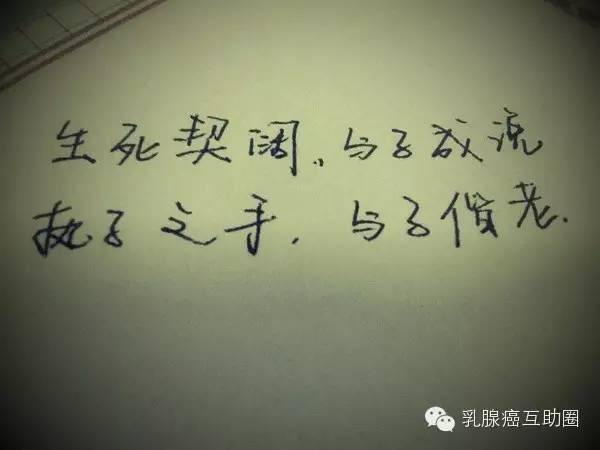 生死契阔、与子成流
执子之手，与子偕老.
乳腺癌互助圈